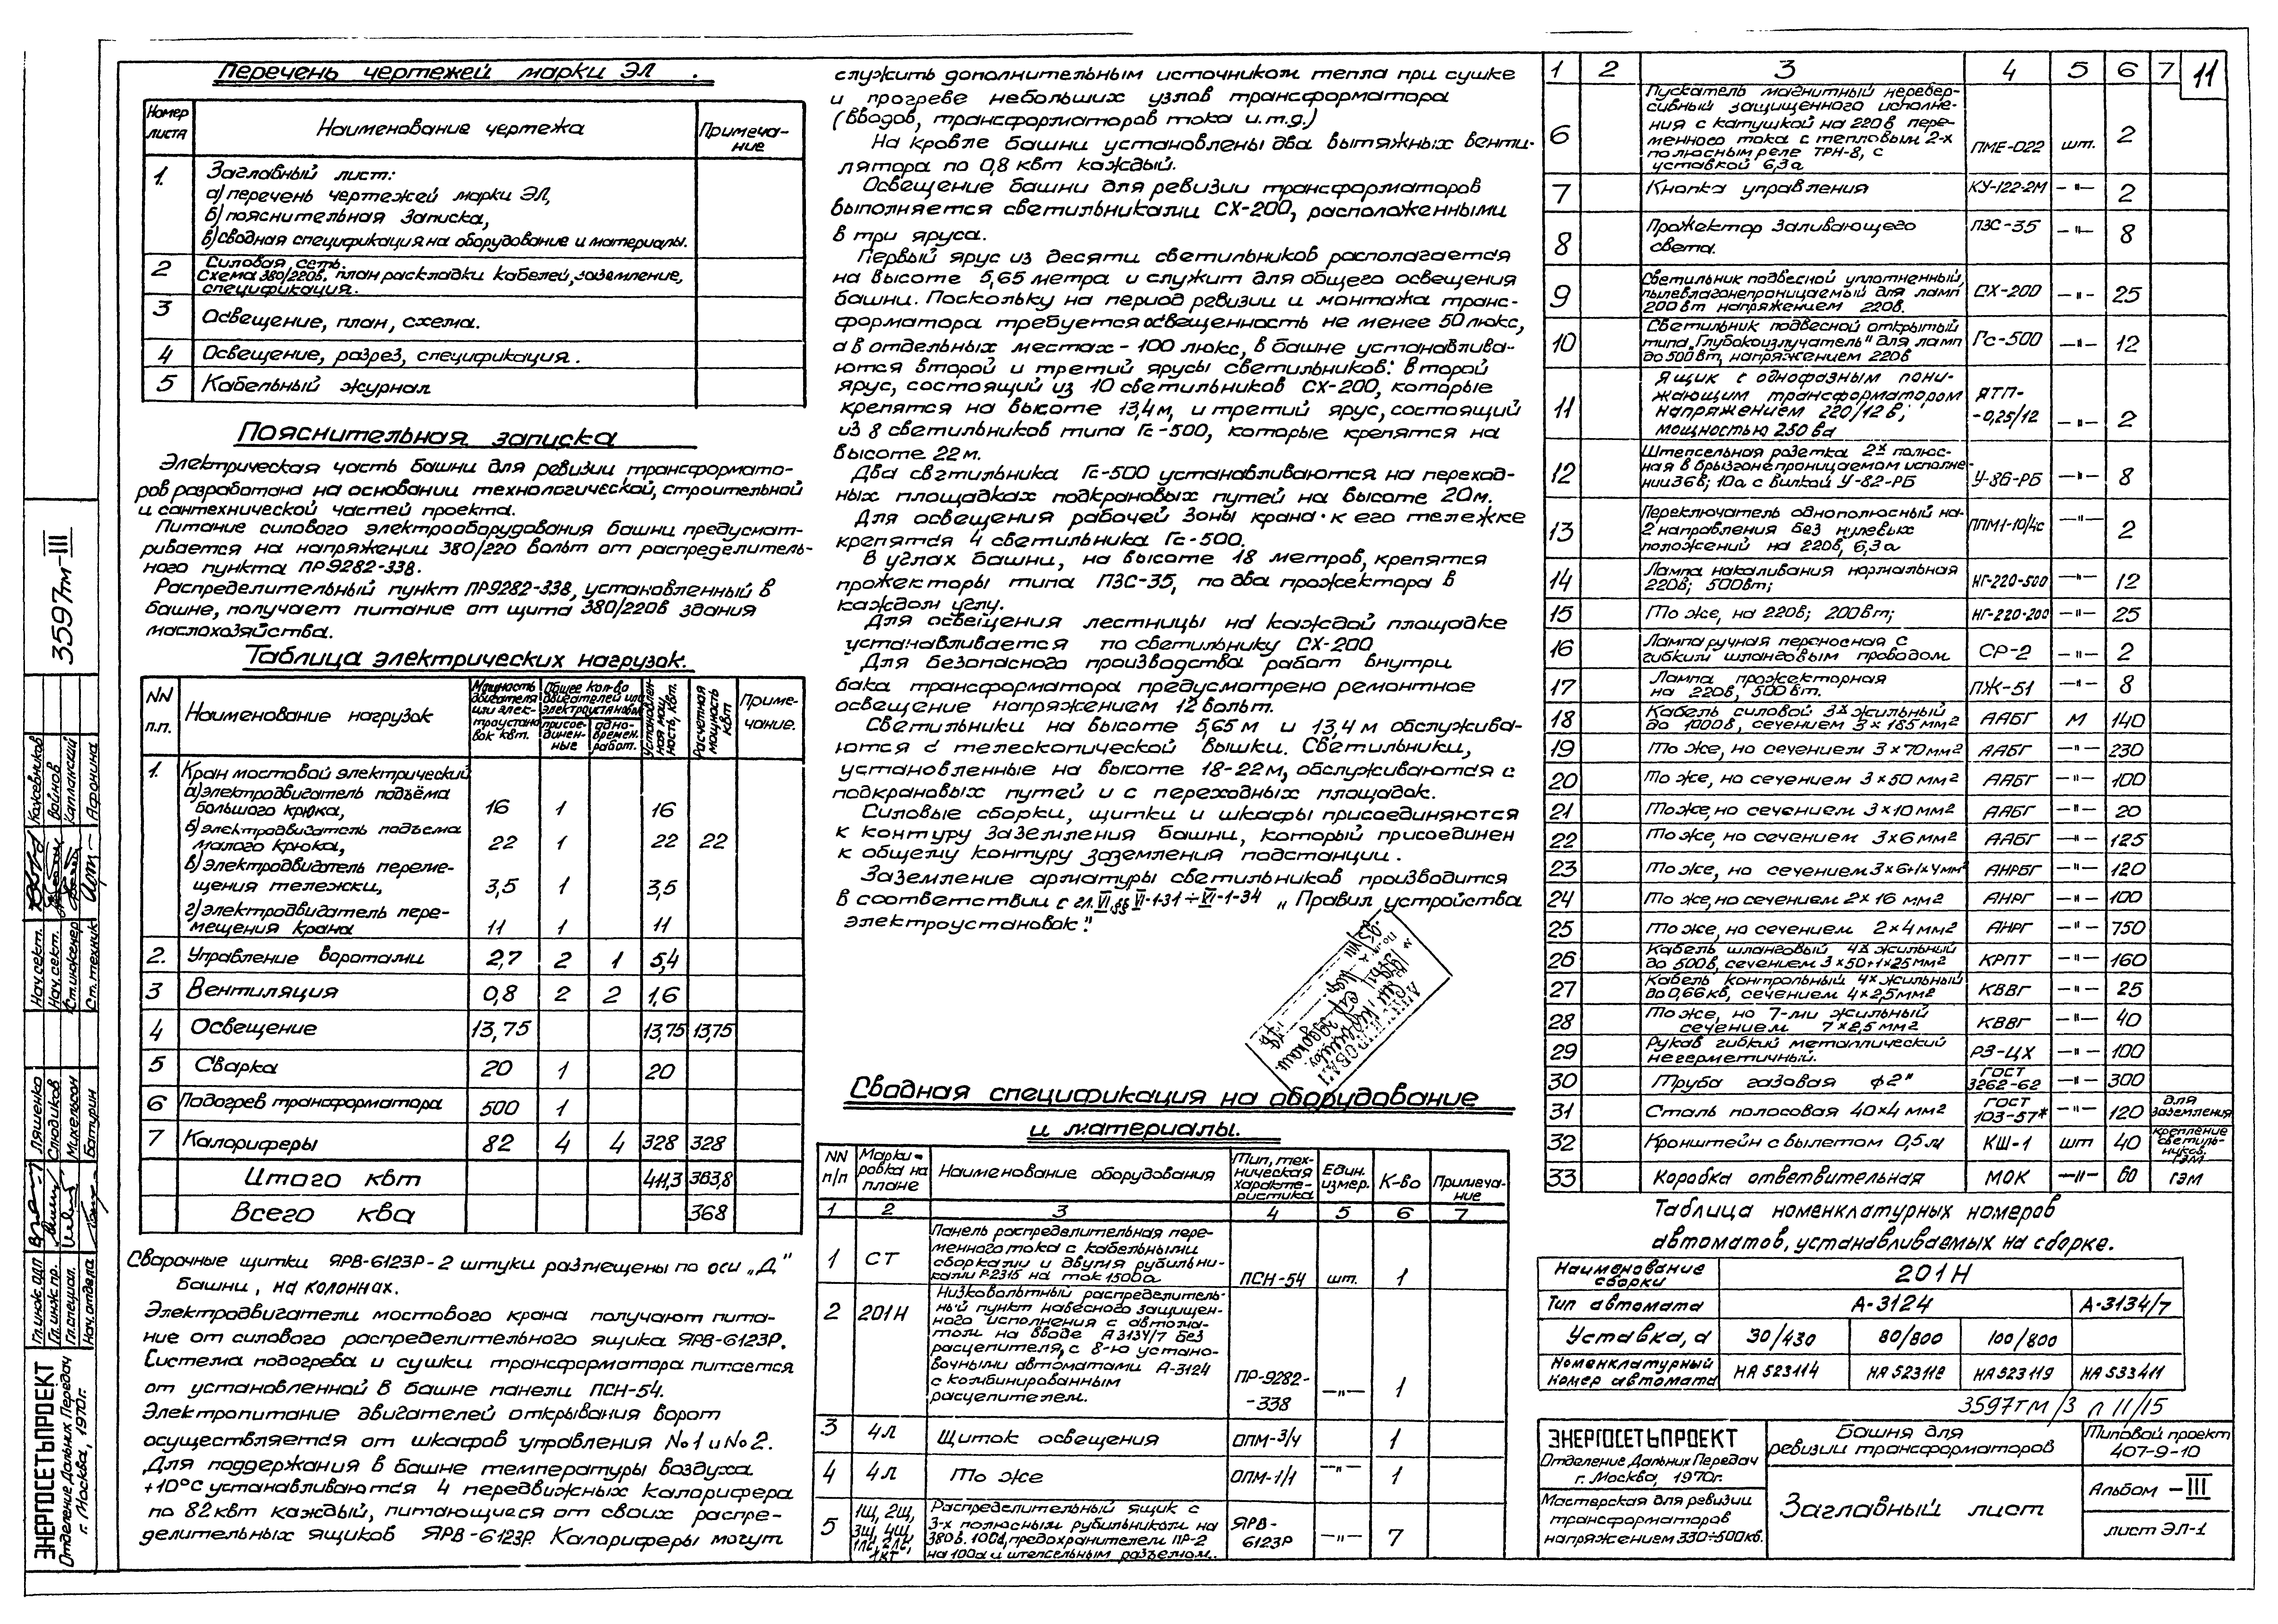 Перечень чертежей марки ЭЛ .
Номер листа | Наименование чертежа | Примеча-ние
1. | Заглавный лист:
а) перечень чертежей марки ЭЛ,
б) пояснительная записка,
в) сводная спецификация на оборудование и материалы.
2 | Силовая сеть.
Схема 380/220в, план раскладки кабелей, заземление,
спецификация.
3 | Освещение, план, схема.
4 | Освещение, разрез, спецификация.
5 | Кабельный журнал
Пояснительная записка
Электрическая часть башни для ревизии трансформато-
ров разработана на основании технологической, строительной
и сантехнической частей проекта.
Питание силового электрооборудования башни предусмат-
ривается на напряжении 380/220 вольт от распределитель-
ного пункта ПР9282-338.
Распределительный пункт ПР9282-338, установленный в
башне, получает питание от щита 380/220в здания
маслохозяйства.
Таблица электрических нагрузок.
NN п.п. | Наименование нагрузок | Мощность двигателя или элек-троустано-вок квт. | Общее кол-во двигателей или электроустановок | присое-динен-ные | одно-времен. работ. | Установлен-ная мощ-ность, квт. | Расчетная мощность квт | Приме-чание.
1. | Кран мостовой электрический
а) электродвигатель подъёма
большого крюка, | 16 | 1 | 16
б) электродвигатель подъема
малого крюка, | 22 | 1 | 22 | 22
в) электродвигатель переме-
щения тележки, | 3,5 | 1 | 3,5
г) электродвигатель пере-
мещения крана | 11 | 1 | 11
2. | Управление воротами | 2,7 | 2 | 1 | 5,4
3 | Вентиляция | 0,8 | 2 | 2 | 1,6
4 | Освещение | 13,75 | 13,75 | 13,75
5 | Сварка | 20 | 1 | 20
6 | Подогрев трансформатора | 500 | 1
7 | Калориферы | 82 | 4 | 4 | 328 | 328
Итого квт | 411,3 | 363,8
Всего ква | 368
Сварочные щитки ЯРВ-6123Р-2 штуки размещены по оси „Д"
башни, на колоннах.
Электродвигатели мостового крана получают пита-
ние от силового распределительного ящика ЯРВ-6123Р.
Система подогрева и сушки трансформатора питается
от установленной в башне панели ПСН-54.
Электропитание двигателей открывания ворот
осуществляется от шкафов управления №1 и №2.
Для поддержания в башне температуры воздуха
+10°С устанавливаются 4 передвижных калорифера
по 82 квт каждый, питающиеся от своих распре-
делительных ящиков ЯРВ-6123Р. Калориферы могут
служить дополнительным источником тепла при сушке
и прогреве небольших узлов трансформатора
(вводов, трансформаторов тока и.т.д.)
На кровле башни установлены два вытяжных венти-
лятора по 0,8 квт каждый.
Освещение башни для ревизии трансформаторов
выполняется светильниками СХ-200, расположенными
в три яруса.
Первый ярус из десяти светильников располагается
на высоте 5,65 метра и служит для общего освещения
башни. Поскольку на период ревизии и монтажа транс-
форматора требуется освещенность не менее 50 люкс,
а в отдельных местах - 100 люкс, в башне устанавлива-
ются второй и третий ярусы светильников: второй
ярус, состоящий из 10 светильников СХ-200, которые
крепятся на высоте 13,4м, и третий ярус, состоящий
из 8 светильников типа Гс-500, которые крепятся на
высоте 22 м.
Два светильника Гс-500 устанавливаются на переход-
ных площадках подкрановых путей на высоте 20м.
Для освещения рабочей зоны крана · к его тележке
крепятся 4 светильника Гс-500.
В углах башни, на высоте 18 метров, крепятся
прожекторы типа ПЗС-35, по два прожектора в
каждом углу.
Для освещения лестницы на каждой площадке
устанавливается по светильнику СХ-200
Для безопасного производства работ внутри
бака трансформатора предусмотрено ремонтное
освещение напряжением 12 вольт.
Светильники на высоте 5,65 м и 13,4 м обслужива-
ются с телескопической вышки. Светильники,
установленные на высоте 18-22м, обслуживаются с
подкрановых путей и с переходных площадок.
Силовые сборки, щитки и шкафы присоединяются
к контуру заземления башни, который присоединен
к общему контуру заземления подстанции.
Заземление арматуры светильников производится
в соответствии с гл. VI, §§ VI-1-31÷VI-1-34 „Правил устройства
электроустановок".
Сводная спецификация на оборудование
и материалы.
NN п/п | Марки-ровка на плане | Наименование оборудования | Тип, тех-ническая характе-ристика | Един. измер. | К-во | Примеча-ние
1 | 2 | 3 | 4 | 5 | 6 | 7
1 | СТ | Панель распределительная пере-
менного тока с кабельными
сборками и двумя рубильни-
ками Р-2315 на ток 1500а | ПСН-54 | шт. | 1
2 | 201Н | Низковольтный распределитель-
ный пункт навесного защищен-
ного исполнения с автома-
том на вводе А3134/7 без
расцепителя, с 8-ю устано-
вочными автоматами А-3124
с комбинированным
расцепителем. | ПР-9282-
-338 | —"— | 1
3 | 4л | Щиток освещения | ОПМ-3/4 | 1
4 | 4л | То же | ОПМ-1/1 | —"— | 1
5 | 1щ, 2щ, 3щ, 4щ, 1лс, 2лс, 1кт | Распределительный ящик с
3-х полюсным рубильником на
380в. 100а, предохранителем ПР-2
на 100а и штепсельным разъемом. | ЯРВ-
6123Р | —"— | 7
1 | 2 | 3 | 4 | 5 | 6 | 7 | 11
6 | Пускатель магнитный неревер-
сивный защищенного исполне-
ния с катушкой на 220в пере-
менного тока с тепловым 2-х
полюсным реле ТРН-8, с
уставкой 6,3а | ПМЕ-022 | шт. | 2
7 | Кнопка управления | КУ-122-2М | —"— | 2
8 | Прожектор заливающего
света. | ПЗС-35 | —"— | 8
9 | Светильник подвесной уплотненный,
пылевлагонепроницаемый для ламп
200 вт напряжением 220в. | СХ-200 | —"— | 25
10 | Светильник подвесной открытый
типа „Глубокоизлучатель" для ламп
до 500 вт, напряжением 220в | Гс-500 | —"— | 12
11 | Ящик с однофазным пони-
жающим трансформатором
напряжением 220/12 в;
мощностью 250 ва | ЯТП-
-0,25/12 | —"— | 2
12 | Штепсельная розетка 2х полюс-
ная в брызгонепроницаемом исполне-
нии 36в; 10а с вилкой У-82-РБ | У-86-РБ | —"— | 8
13 | Переключатель однополюсный на-
2 направления без нулевых
положений на 220в, 6,3а | ППМ1-10/4с | —"— | 2
14 | Лампа накаливания нормальная
220в; 500вт; | НГ-220-500 | —"— | 12
15 | То же, на 220в; 200вт; | НГ-220-200 | 25
16 | Лампа ручная переносная с
гибким шланговым проводом. | СР-2 | —"— | 2
17 | Лампа прожекторная
на 220в, 500 вт. | ПЖ-51 | —"— | 8
18 | Кабель силовой 3х жильный
до 1000в, сечением 3×185мм² | ААБГ | М | 140
19 | То же, но сечением 3×70мм² | ААБГ | —"— | 230
20 | То же, но сечением 3×50 мм² | ААБГ | —"— | 100
21 | То же, но сечением 3×10мм² | ААБГ | —"— | 20
22 | То же, но сечением 3х6 мм² | ААБГ | —"— | 125
23 | То же, но сечением 3×6+1×4мм² | АНРБГ | —"— | 120
24 | То же, но сечением 2×16 мм² | АНРГ | —"— | 100
25 | То же, но сечением 2×4мм² | АНРГ | —"— | 750
26 | Кабель шланговый 4х жильный
до 500в, сечением 3×50+1×25мм² | КРПТ | —"— | 160
27 | Кабель контрольный 4х жильный
до 0,66кв, сечением 4×2,5мм² | КВВГ | —"— | 25
28 | То же, но 7-ми жильный
сечением 7×2,5 мм² | КВВГ | —"— | 40
29 | Рукав гибкий металлический
негерметичный. | РЗ-ЦХ | —"— | 100
30 | Труба газовая ф2" | ГОСТ
3262-62 | —"— | 300
31 | Сталь полосовая 40×4 мм² | ГОСТ
103-57* | —"— | 120 | для
заземления
32 | Кронштейн с вылетом 0,5м | КШ-1 | шт | 40 | крепление
светиль-
ников,
ГЭМ
33 | Коробка ответвительная | МОК | —"— | 60 | ГЭМ
Таблица номенклатурных номеров
автоматов, устанавливаемых на сборке.
Наименование сборки | 201Н
Тип автомата | А-3124 | А-3134/7
Уставка, а | 30/430 | 80/800 | 100/800
Номенклатурный номер автомата | НА 523114 | НА 523118 | НА 523119 | НА 533411
3597тм/3 л 11/15
ЭНЕРГОСЕТЬПРОЕКТ
Отделение Дальних Передач
г. Москва, 1970г.
Мастерская для ревизии
трансформаторов
напряжением 330÷500кв.
Башня для
ревизии трансформаторов
Заглавный лист
Типовой проект
407-9-10
Альбом - III
лист ЭЛ-1
3597тм-III
Нач. сект. | Кожевников
Нач. сект. | Войнов
Ст. инженер | Каплонский
Ст. техник | Афонина
Гл. инж. ОДП | Ляшенко
Гл. инж. пр. | Слюдиков
Гл. специал. | Михельсон
Нач. отдела | Батурин
ЭНЕРГОСЕТЬПРОЕКТ
Отделение Дальних Передач
г. Москва, 1970г.